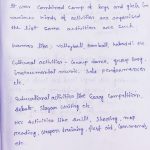 It was Combined Camp of boys and girls in
various kinds of activities are organised
the list some activities are such
Games like : Volleyball, football,
Cultural activities - Group dance, group song,
instrumental music. Solo performances
etc.
Educational activities like Essay Competition,
debate, Slogan writing etc
NCC Activities like drill, Shooting, map
reading, weapon training, first aid,
etc.